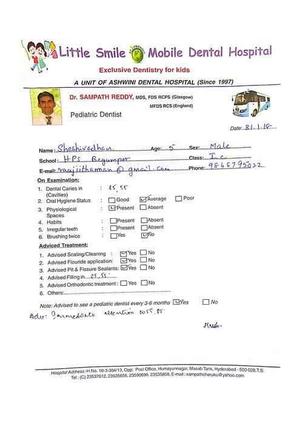 Little Smile Mobile Dental Hospital
Exclusive Dentistry for kids
A UNIT OF ASHWINI DENTAL HOSPITAL (Since 1997)
Dr. SAMPATH REDDY, MDS, FDS RCPS (Glasgow)
MFDS RCS (England)
Pediatric Dentist
Date: 31.1.15
Name: Shashivadhan Age: 5 Sex: Male
School: HPS Begumpet Class: I.C
E-mail: @gmail.com Phone:
On Examination:
1. Dental Caries in (Cavities) : 85,55
2. Oral Hygiene Status : Good Average Poor
3. Physiological Spaces : Present Absent
4. Habits : Present Absent
5. Irregular teeth : Present Absent
6. Brushing twice : Yes No
Adviced Treatment:
1. Advised Scaling/Cleaning : Yes No
2. Advised Flouride application: Yes No
3. Advised Pit & Fissure Sealants: Yes No
4. Advised Filling in
5. Advised Orthodontic Treatment : Yes No
6. Others:
Note: Advised to see a pediatric dentist every 3-6 months Yes No
Adv: Immediate attention 55,85
Hospital Address: Opp. Post Office, Humayunnagar, Masab Tank, Hyderabad